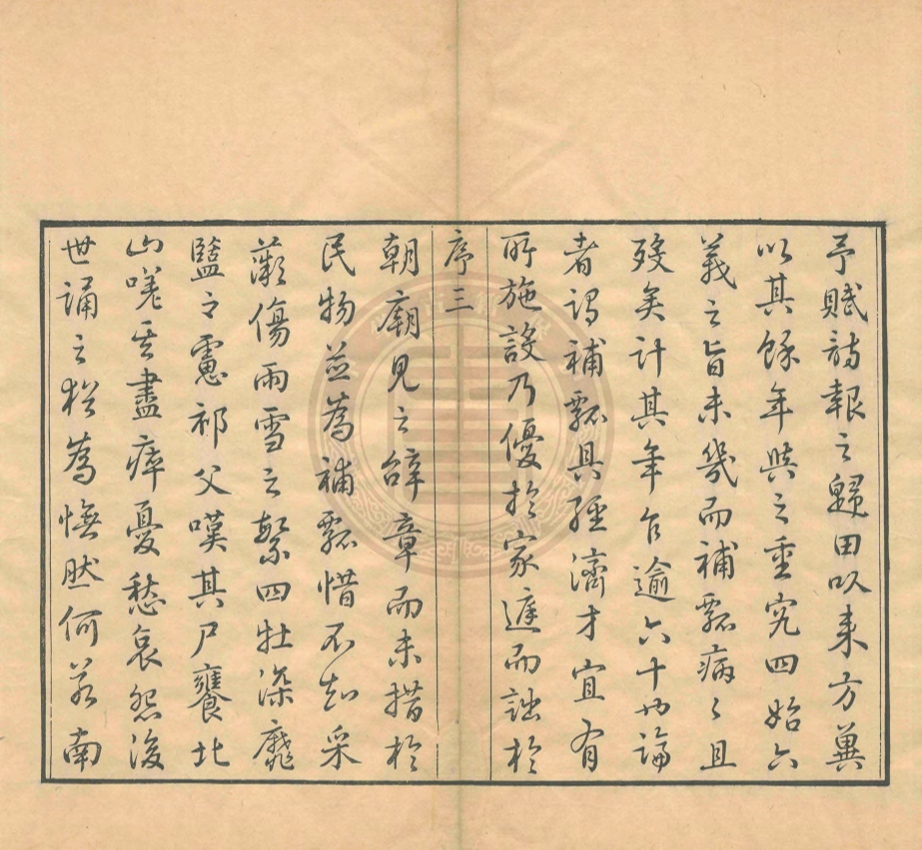 予賦詩報之歸田以来方冀
以其餘年與之重究四始六
義之旨未幾而補瓢病病且
殁矣計其年乍逾六十也論
者謂補瓢具經濟才宜有
所施設乃優於家遽而詘於
序三
朝廟見之辞章而未措於
民物並為補瓢惜不知采
薇傷雨雪之檠四牡深靡
盬之慮祁父嘆其尸饔北
山嗟其盡瘁憂愁哀怨後
世誦之猶為憮然何若南